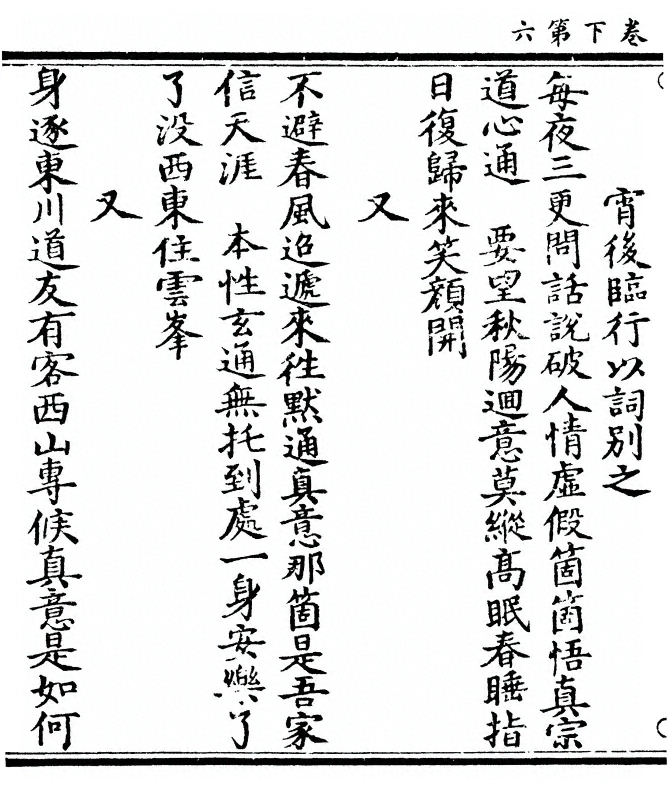 卷下第六
宵後臨行以詞別之
每夜三更問話說破人情虛假箇箇悟真宗
道心通　要望秋陽迴意莫縱高眠春睡指
日復歸來笑顏開
又
不避春風迢遞來往默通真意那箇是吾家
信天涯　本性玄通無托到處一身安樂了
了没西東住雲峯
又
身逐東川道友有客西山專候真意是如何